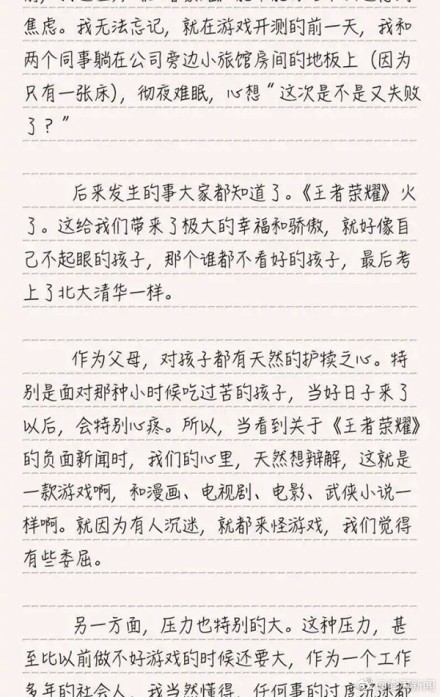 焦虑。我无法忘记，就在游戏开测的前一天，我和
两个同事躺在公司旁边小旅馆房间的地板上（因为
只有一张床），彻夜难眠，心想“这次是不是又失败
了？”
后来发生的事大家都知道了。《王者荣耀》火
了。这给我们带来了极大的幸福和骄傲，就好像自
己不起眼的孩子，那个谁都不看好的孩子，最后考
上了北大清华一样。
作为父母，对孩子都有天然的护犊之心。特
别是面对那种小时候吃过苦的孩子，当好日子来了
以后，会特别心疼。所以，当看到关于《王者荣耀》
的负面新闻时，我们的心里，天然想辩解，这就是
一款游戏啊，和漫画、电视剧、电影、武侠小说一
样啊。就因为有人沉迷，就都来怪游戏，我们觉得
有些委屈。
另一方面，压力也特别的大。这种压力，甚
至比以前做不好游戏的时候还要大，作为一个工作
多年的社会人，我当然懂得，任何事的过